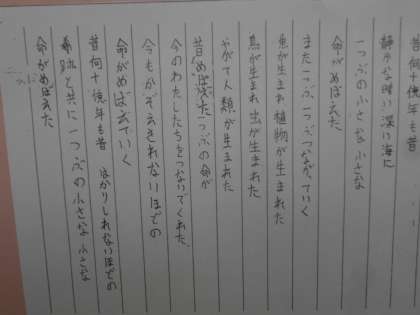 昔何億年も昔
静かな暗い深い海に
一つぶの小さな小さな
命がめばえた
また一つぶ一つぶつながっていく
魚が生まれ植物が生まれた
鳥が生まれ虫が生まれた
やがて人類が生まれた
昔めばえた一つぶの命が
今のわたしたちをつないでくれた
今もかぞえきれないほどの
命がめばえていく
昔何十億年も昔 はかりしれないほどの
奇跡と共に一つぶの小さな小さな
命がめばえた